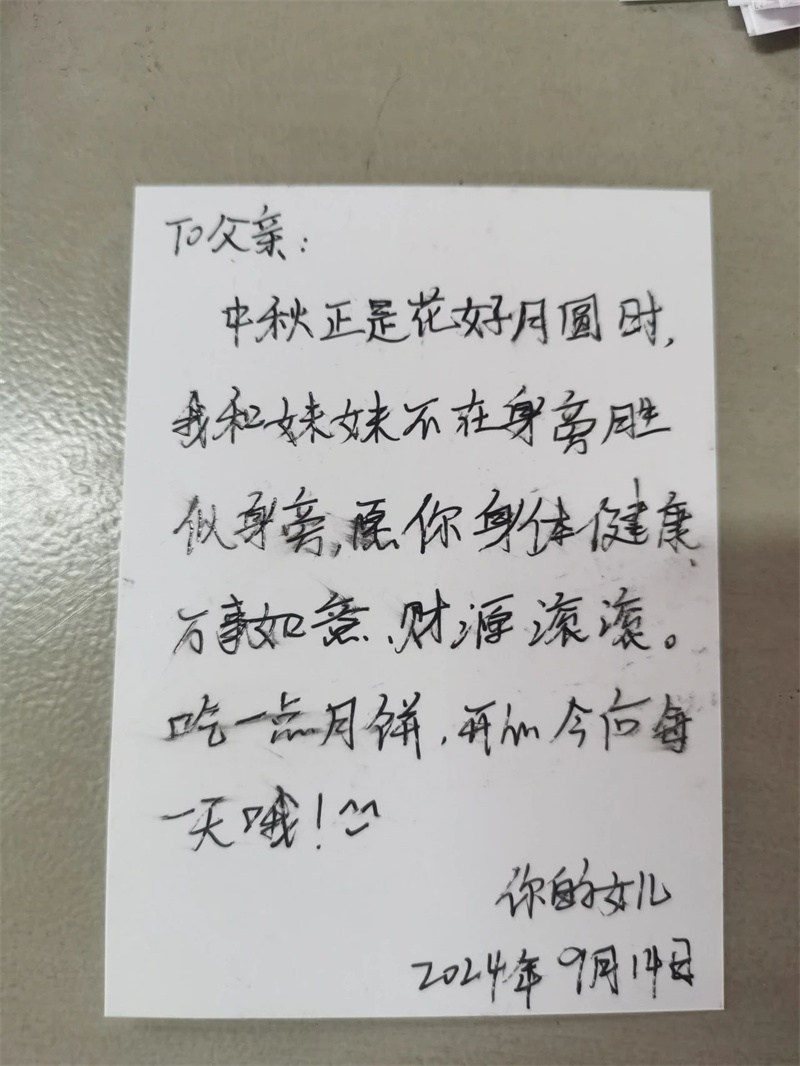 To父亲：
中秋正是花好月圆时，
我和妹妹不在身旁胜
似身旁，愿你身体健康、
万事如意、财源滚滚。
吃一点月饼，开心今后每
一天哦！^^
你的女儿
2024年9月14日